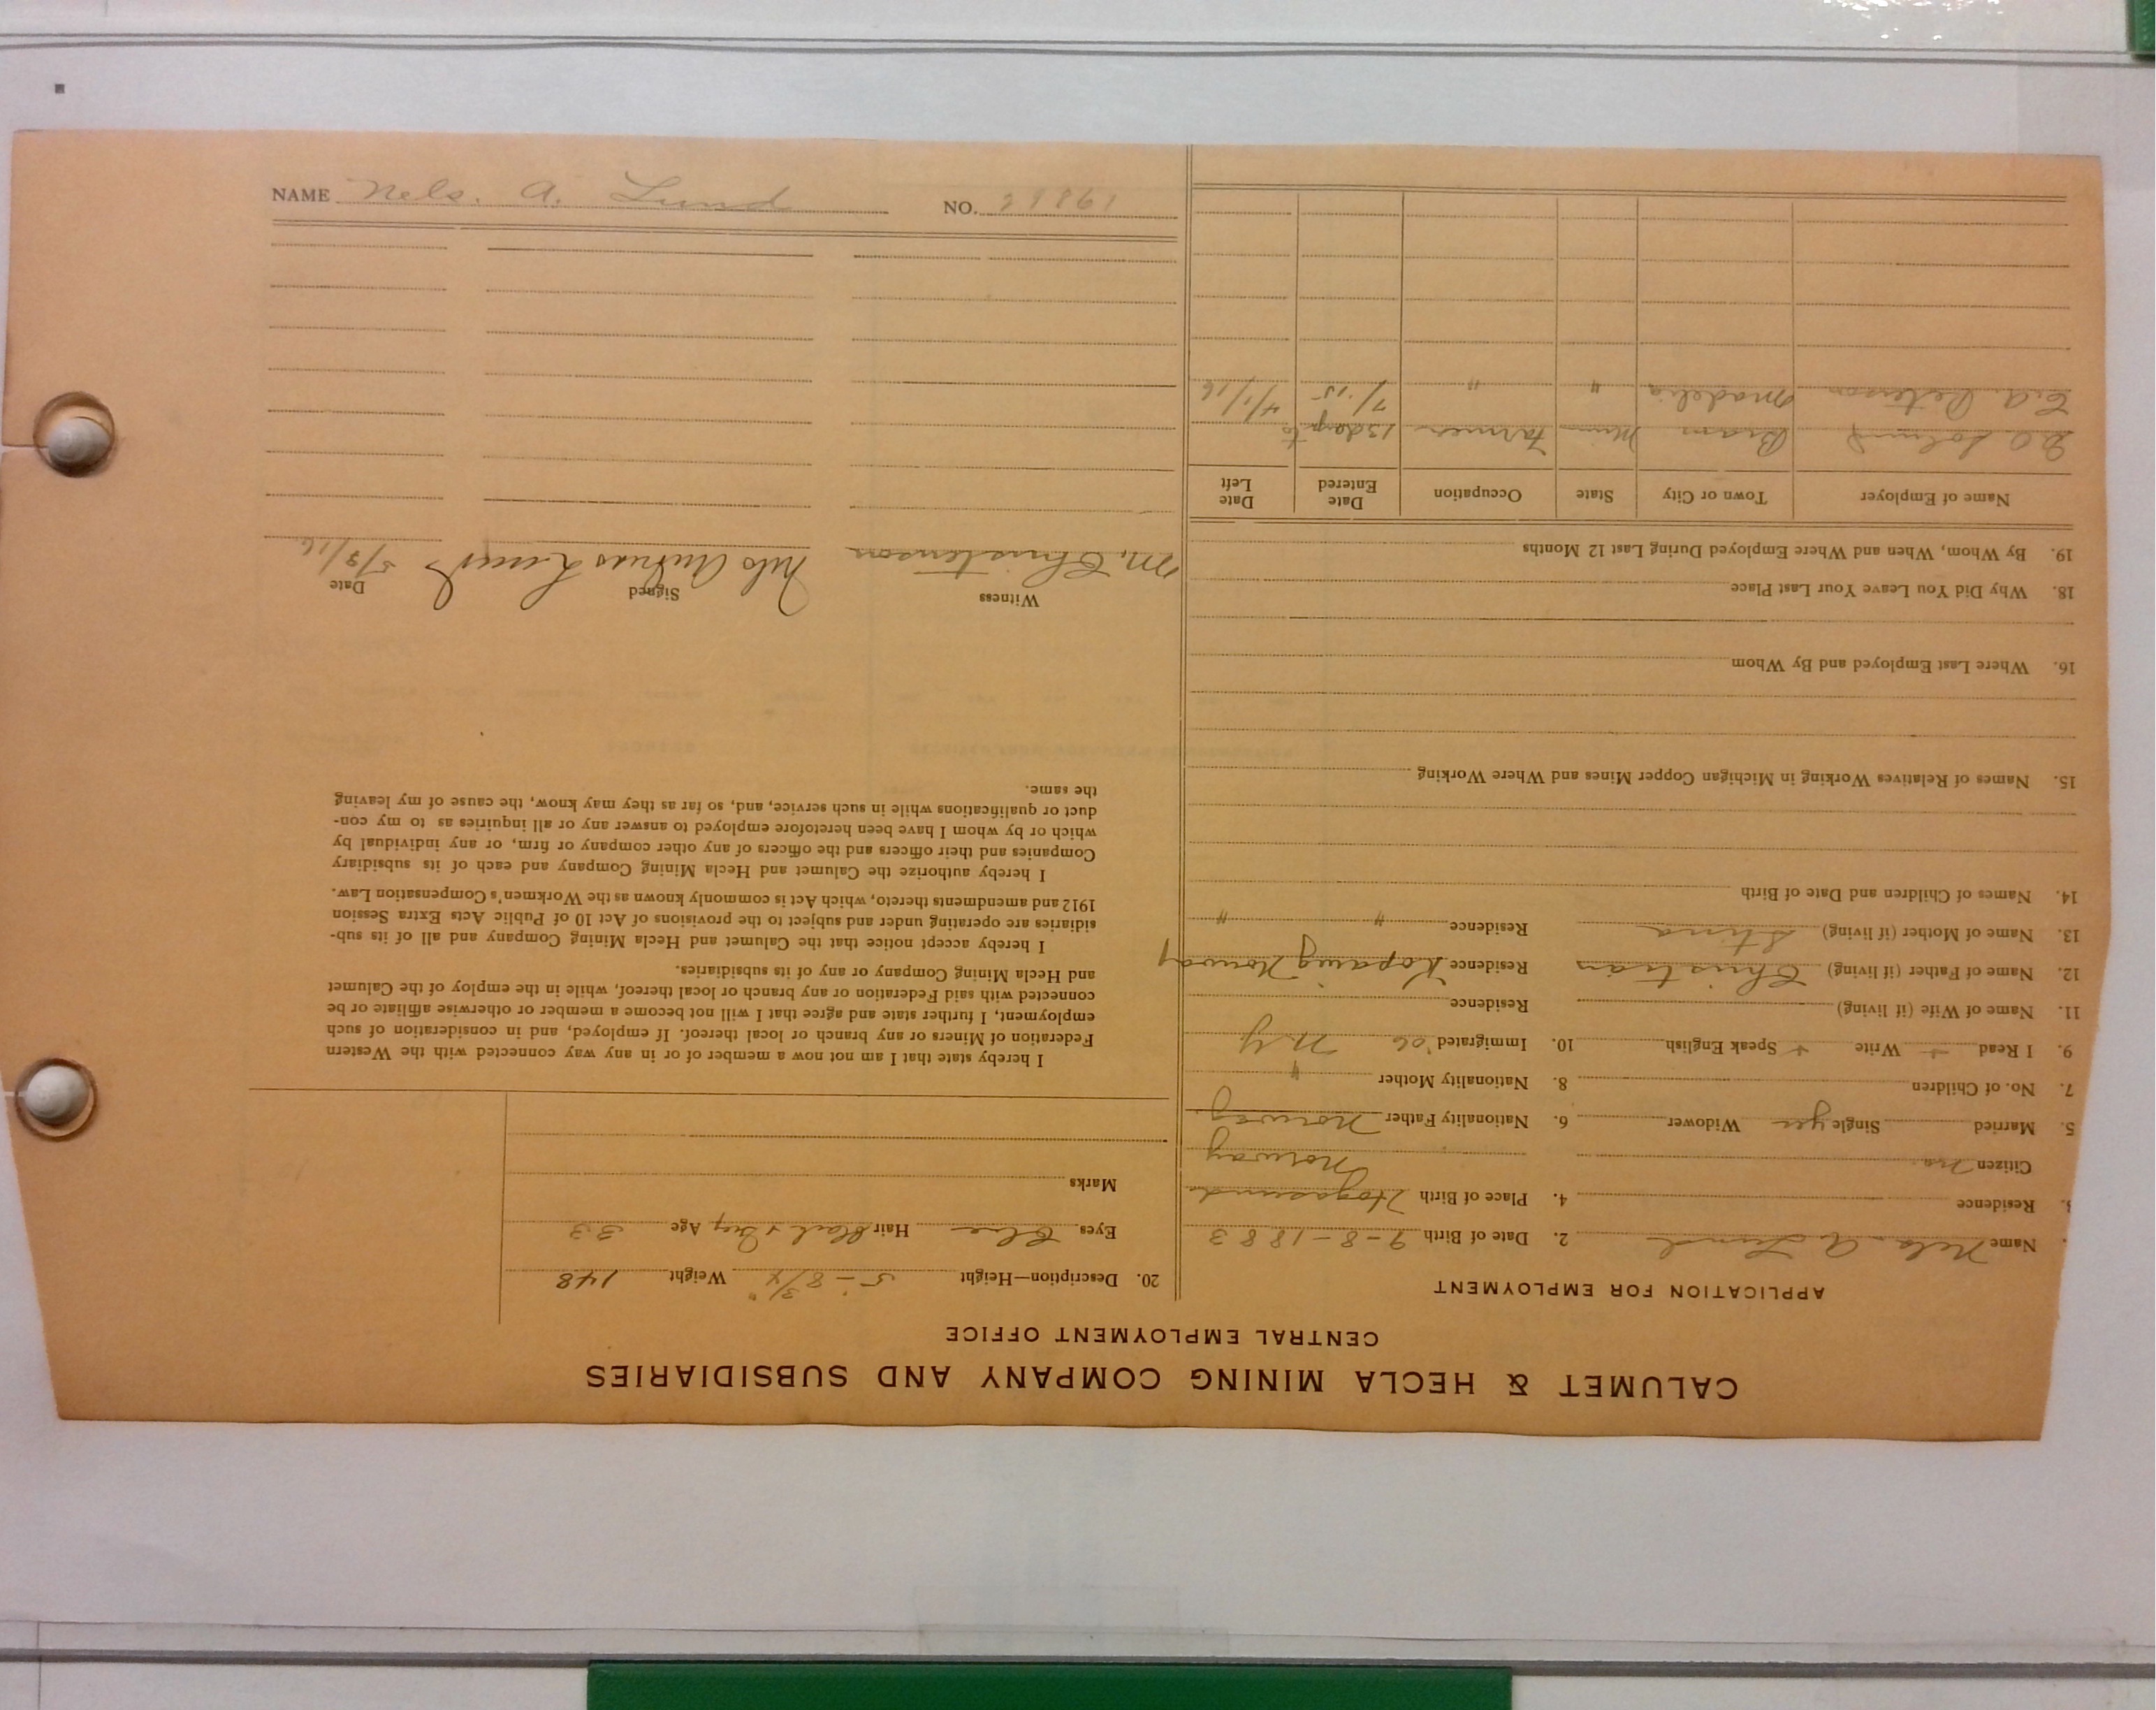 CALUMET & HECLA MINING COMPANY AND SUBSIDIARIES
CENTRAL EMPLOYMENT OFFICE
APPLICATION FOR EMPLOYMENT
Name Nels. A Lund 2. Date of Birth 9-8-1883
3. Residence 4. Place of Birth
Citizen no. Norway
5. Married Single yes Widower 6. Nationality Father Norway.
7. No. of Children 8. Nationality Mother "
9. I Read + Write + Speak English 10. Immigrated '06 N Y
11. Name of Wife (if living) Residence
12. Name of Father (if living) Christian Residence Norway
13. Name of Mother (if living) Stina Residence " "
14. Names of Children and Date of Birth
15. Names of Relatives Working in Michigan Copper Mines and Where Working
16. Where Last Employed and By Whom
18. Why Did You Leave Your Last Place
19. By Whom, When and Where Employed During Last 12 Months
Name of Employer Town or City State Occupation Date Entered Date Left
Minn Farmer 13 days to
C.A. Peterson Madelia " " 7/15 4/1/16
20. Description—Height 5'-8 3/4" Weight 148
Eyes Blue Hair Black & Grey Age 33
Marks
I hereby state that I am not now a member of or in any way connected with the Western
Federation of Miners or any branch or local thereof. If employed, and in consideration of such
employment, I further state and agree that I will not become a member or otherwise affiliate or be
connected with said Federation or any branch or local thereof, while in the employ of the Calumet
and Hecla Mining Company or any of its subsidiaries.
I hereby accept notice that the Calumet and Hecla Mining Company and all of its sub-
sidiaries are operating under and subject to the provisions of Act 10 of Public Acts Extra Session
1912 and amendments thereto, which Act is commonly known as the Workmen's Compensation Law.
I hereby authorize the Calumet and Hecla Mining Company and each of its subsidiary
Companies and their officers and the officers of any other company or firm, or any individual by
which or by whom I have been heretofore employed to answer any or all inquiries as to my con-
duct or qualifications while in such service, and, so far as they may know, the cause of my leaving
the same.
Witness Signed Date
M. Christenson Nels Andreas Lund 5/3/16
NAME Nels. A. Lund NO. 29861